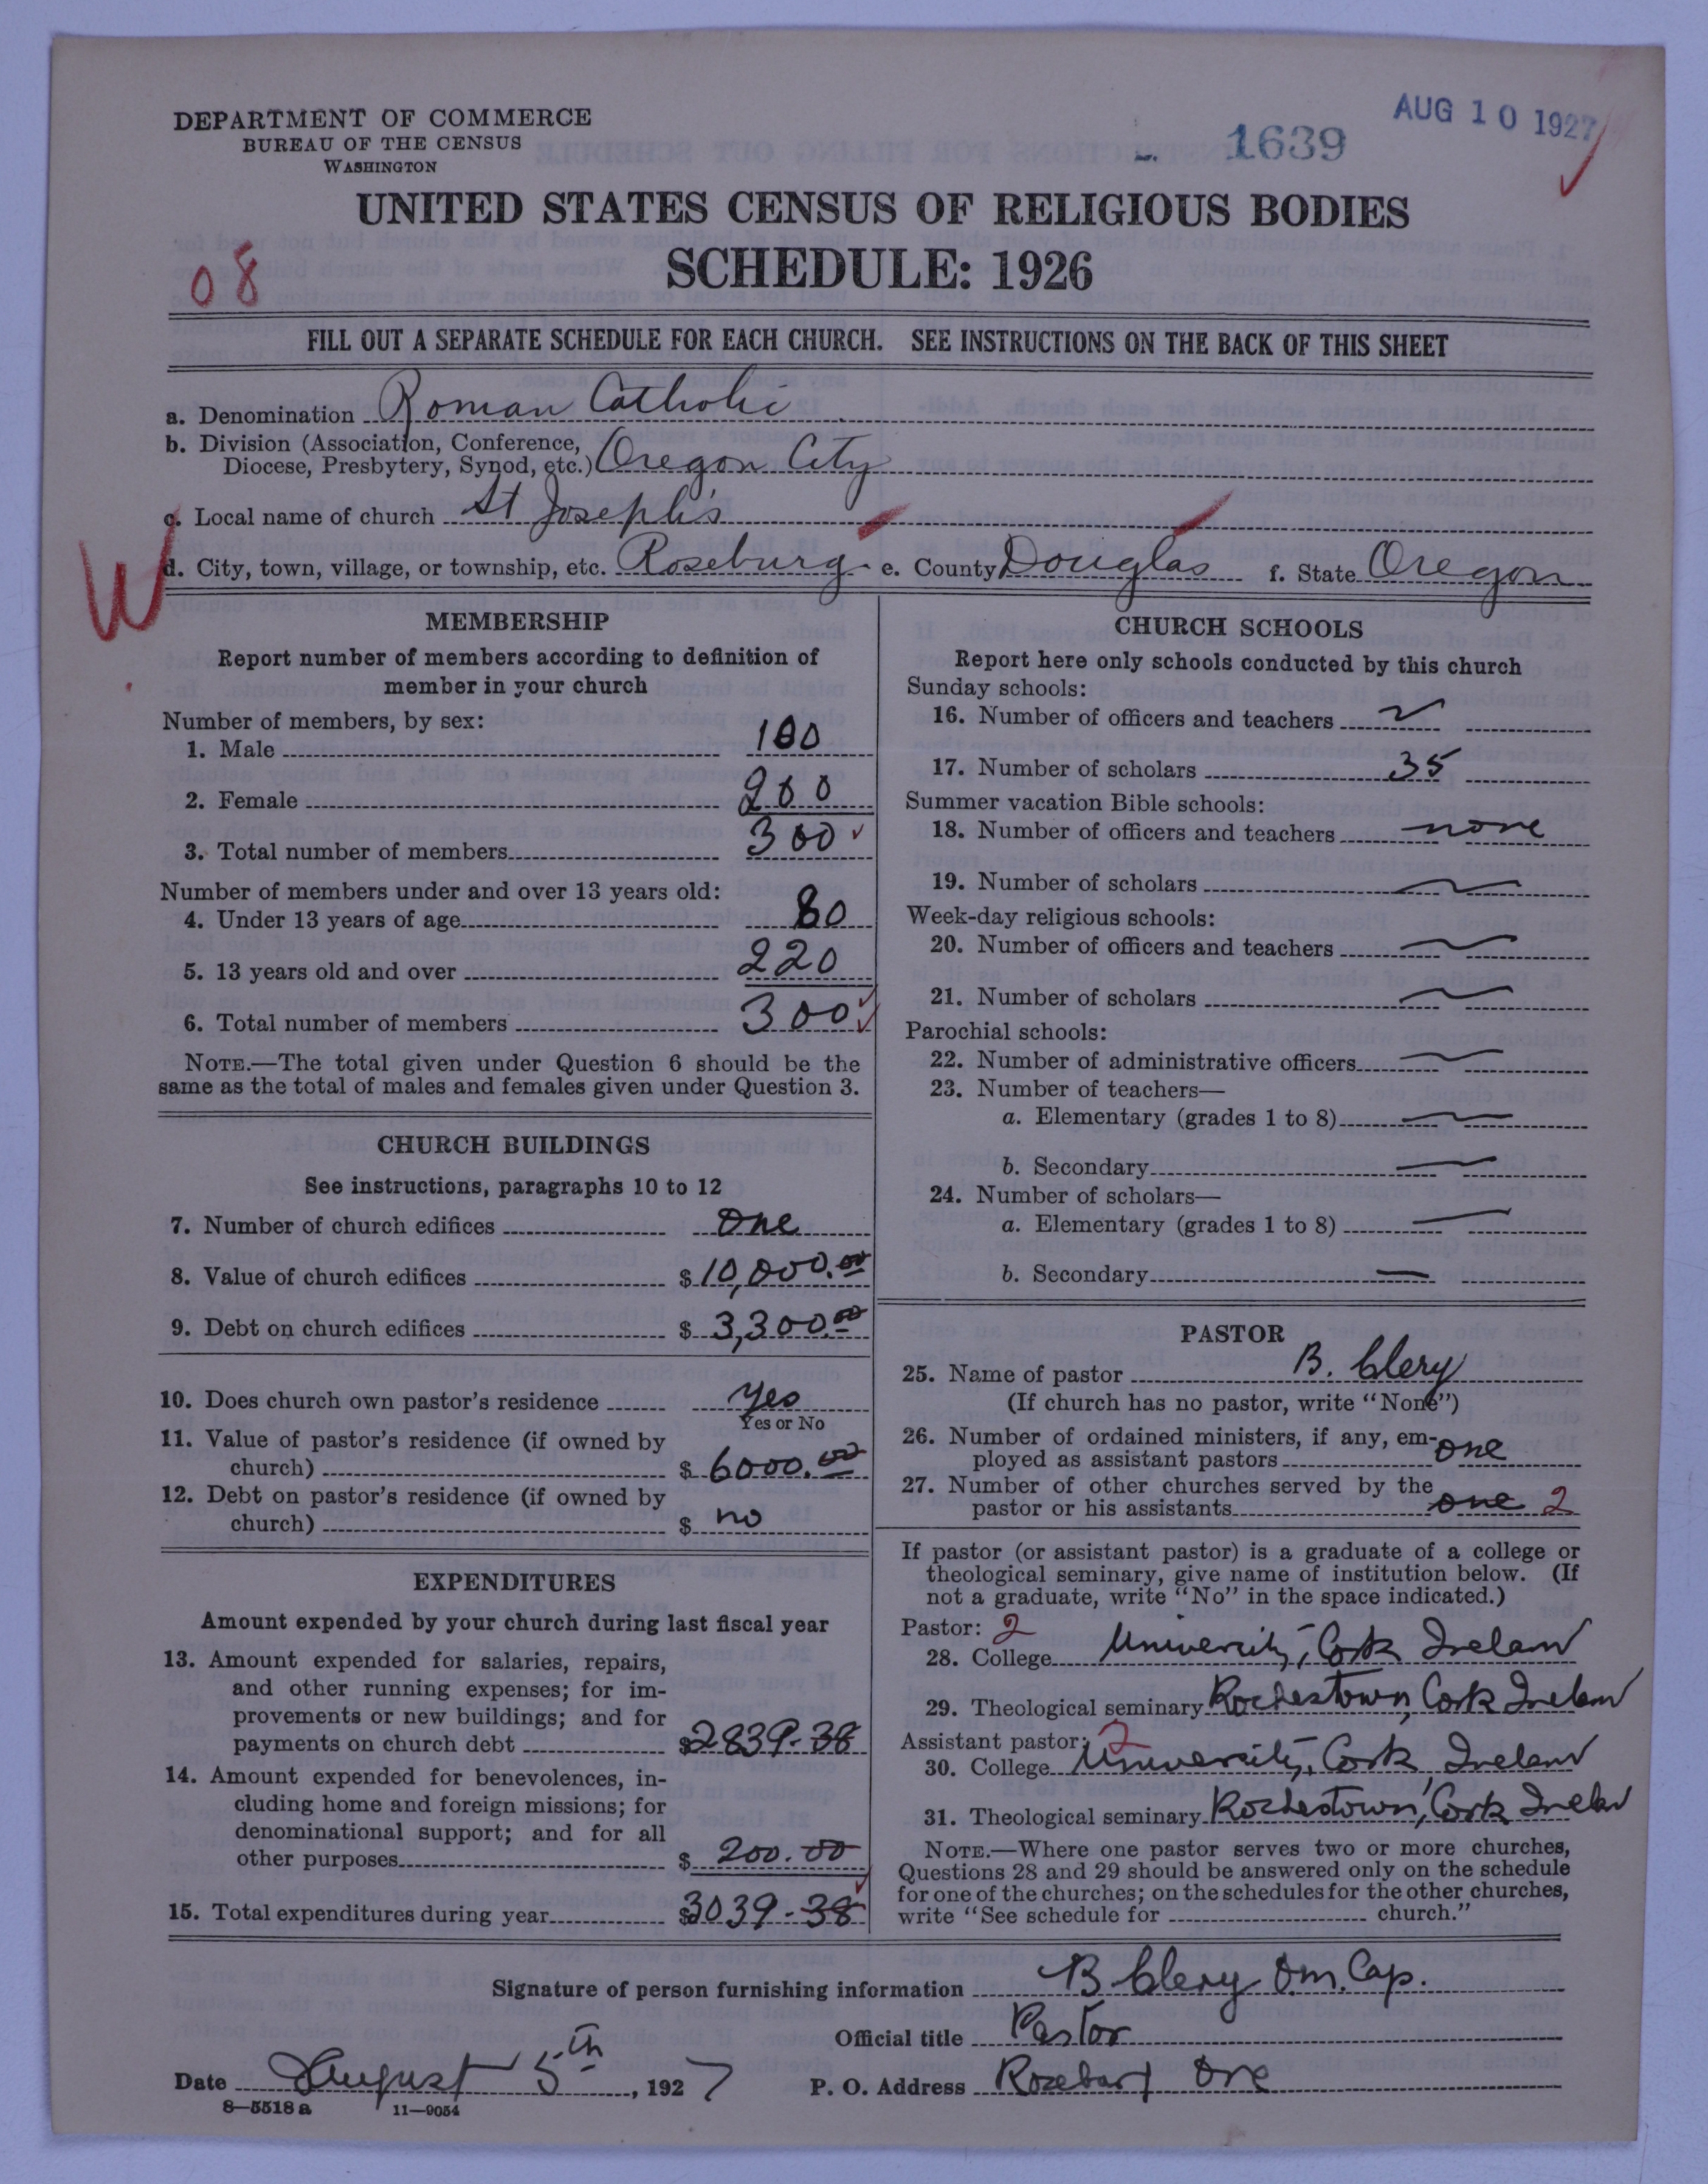 DEPARTMENT OF COMMERCE
BUREAU OF THE CENSUS
WASHINGTON
1639
AUG 10 1927
UNITED STATES CENSUS OF RELIGIOUS BODIES
SCHEDULE: 1926
08
FILL OUT A SEPARATE SCHEDULE FOR EACH CHURCH. SEE INSTRUCTIONS ON THE BACK OF THIS SHEET
a. Denomination Roman Catholic
b. Division (Association, Conference,
Diocese, Presbytery, Synod, etc.) Oregon City
c. Local name of church St Joseph's
W
d. City, town, village, or township, etc. Roseburg e. County Douglas f. State Oregon
MEMBERSHIP
Report number of members according to definition of
member in your church
Number of members, by sex:
1. Male 100
2. Female 200
3. Total number of members 300
Number of members under and over 13 years old:
4. Under 13 years of age 80
5. 13 years old and over 220
6. Total number of members 300
NOTE.—The total given under Question 6 should be the
same as the total of males and females given under Question 3.
CHURCH BUILDINGS
See instructions, paragraphs 10 to 12
7. Number of church edifices one
8. Value of church edifices $10,000.00
9. Debt on church edifices $3,300.00
10. Does church own pastor's residence yes
Yes or No
11. Value of pastor's residence (if owned by
church) $6000.00
12. Debt on pastor's residence (if owned by
church) $ no
EXPENDITURES
Amount expended by your church during last fiscal year
13. Amount expended for salaries, repairs,
and other running expenses; for im-
provements or new buildings; and for
payments on church debt $2839-38
14. Amount expended for benevolences, in-
cluding home and foreign missions; for
denominational support; and for all
other purposes $200.00
15. Total expenditures during year $3039-38
CHURCH SCHOOLS
Report here only schools conducted by this church
Sunday schools:
16. Number of officers and teachers
17. Number of scholars 35
Summer vacation Bible schools:
18. Number of officers and teachers none
19. Number of scholars
Week-day religious schools:
20. Number of officers and teachers
21. Number of scholars
Parochial schools:
22. Number of administrative officers
23. Number of teachers—
a. Elementary (grades 1 to 8)
b. Secondary
24. Number of scholars—
a. Elementary (grades 1 to 8)
b. Secondary
PASTOR
25. Name of pastor B. Clery
(If church has no pastor, write "None")
26. Number of ordained ministers, if any, em-
ployed as assistant pastors one
27. Number of other churches served by the
pastor or his assistants one 2
If pastor (or assistant pastor) is a graduate of a college or
theological seminary, give name of institution below. (If
not a graduate, write "No" in the space indicated.)
Pastor: 2
28. College University, Cork Ireland
29. Theological seminary Rochestown, Cork Ireland
Assistant pastor: 2
30. College University, Cork Ireland
31. Theological seminary Rochestown, Cork Ireland
NOTE.—Where one pastor serves two or more churches,
Questions 28 and 29 should be answered only on the schedule
for one of the churches; on the schedules for the other churches,
write "See schedule for church."
Signature of person furnishing information B Clery O.M. Cap.
Official title Pastor
Date August 5th, 1927 P. O. Address Roseburg Ore
8—5518a 11—9054